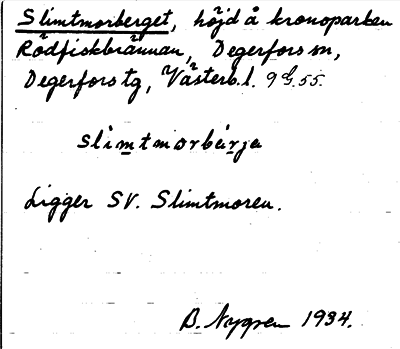 Slimtmorberget, höjd å kronoparken
Rödfiskbrännan, Degerfors sn,
Degerfors tg, Västerb. l. 9 G. 55.
slimtmorbärja
Ligger SV. Slimtmoren.
B. Nygren 1934.